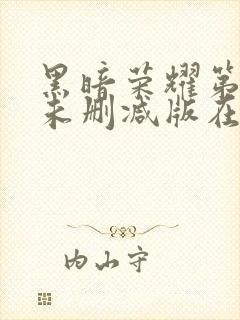 黑暗荣耀第
未删减版在
内山守